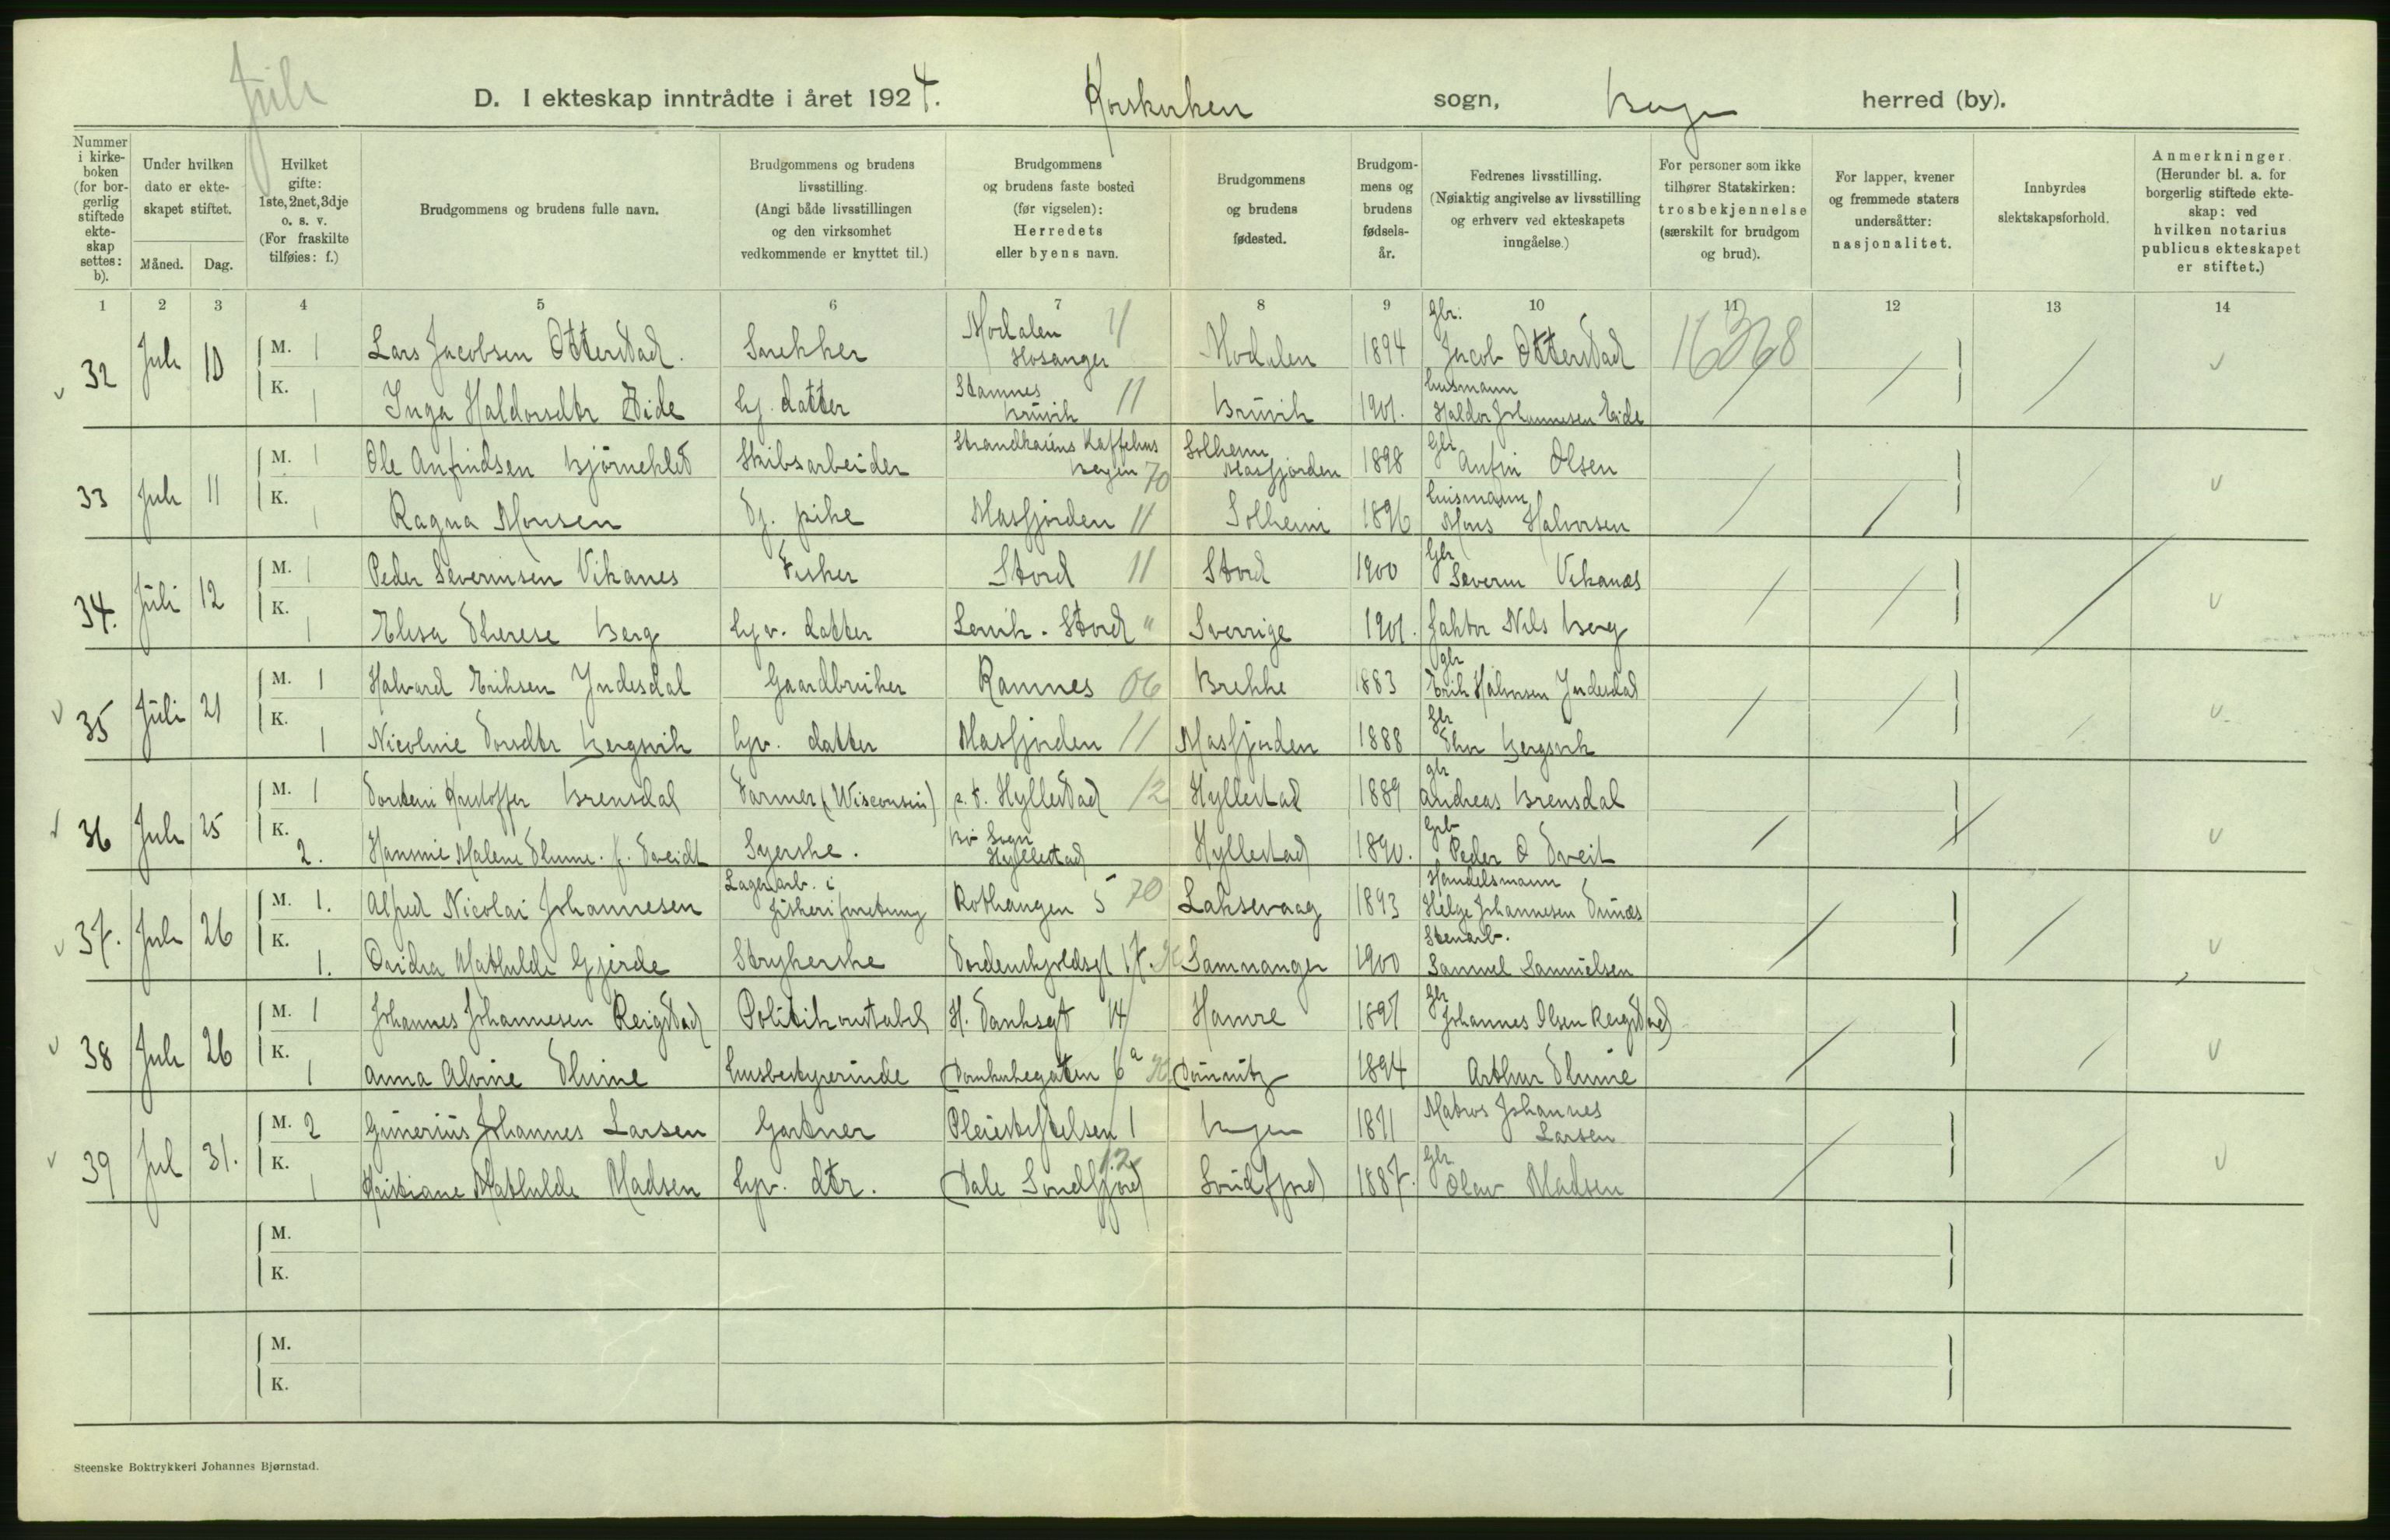 Juli
D. I ekteskap inntrådte i året 1924. Korskirken sogn, Bergen herred (by).
Nummer i kirkeboken (for borgerlig stiftede ekteskap settes: b).
Under hvilken dato er ekteskapet stiftet.
Måned. Dag.
Hvilket gifte: 1ste, 2net, 3dje o. s. v. (For fraskilte tilføies: f.)
Brudgommens og brudens fulle navn.
Brudgommens og brudens livsstilling. (Angi både livsstillingen og den virksomhet vedkommende er knyttet til.)
Brudgommens og brudens faste bosted (før vigselen): Herredets eller byens navn.
Brudgommens og brudens fødested.
Brudgommens og brudens fødselsår.
Fedrenes livsstilling. (Nøiaktig angivelse av livsstilling og erhverv ved ekteskapets inngåelse.)
For personer som ikke tilhører Statskirken: trosbekjennelse (særskilt for brudgom og brud).
For lapper, kvener og fremmede staters undersåtter: nasjonalitet.
Innbyrdes slektskapsforhold.
Anmerkninger. (Herunder bl. a. for borgerlig stiftede ekteskap: ved hvilken notarius publicus ekteskapet er stiftet.)
1 2 3 4 5 6 7 8 9 10 11 12 13 14
32 Juli 10 M. 1 Lars Jacobsen Otterstad. Snekker Modalen Hosanger 11 Modalen 1894 Gbr. Jacob Otterstad 16368
K. 1 Inga Haldorsdtr Eide hj. datter Stamnes Bruvik 11 Bruvik 1901. husmann Haldor Johannesen Eide
33 Juli 11 M. 1 Ole Anfindsen Bjørneklet Skibsarbeider Strandkaiens Kaffehus Bergen 70 Solheim Masfjorden 1898 Gbr Anfin Olsen
K. 1 Ragna Monsen Tj. pike Masfjorden 11 Solheim 1896 husmann Mons Halvorsen
34. Juli 12 M. 1 Peder Severinsen Vikanes Fisker Stord 11 Stord 1900 Gbr Severin Vikanæs
K. 1 Elisa Therese Berg hjv. datter Lervik. Stord " Sverrige 1901. faktor Nils Berg
35 Juli 21 M. 1 Halvard Eriksen Yndesdal Gaardbruker Ramnes 06 Brekke 1883 gbr Erik Halvorsen Yndesdal
K. 1 Nicoline Torsdtr Bergsvik hjv. datter Masfjorden 11 Masfjorden 1888 Gbr Thor Bergsvik
36 Juli 25 M. 1 Torstein Kristoffer Brensdal Farmer (Wisconsin) p. t. Hyllestad 12 Hyllestad 1889 gbr Andreas Brensdal
K. 2. Hansine Malene Thune. f. Tveidt Syerske. Bø Sogn Hyllestad Hyllestad 1890. Grb Peder O Tveit
37. Juli 26 M. 1. Alfred Nicolai Johannesen Lagerarb. i fiskeriforetning Rothaugen 5 70 Laksevaag 1893 Handelsmann Helge Johannesen
K. 1. Mathilde Gjerde Strykerske Tordenskjoldsgt 17. Samnanger 1900 Stenarb. Samuel Samuelsen
38 Juli 26 M. 1 Johannes Johannesen Reigstad Politikonstabel H. Tanksgt 14 Hamre 1897 Gbr Johannes Olsen Reigstad
K. 1 Anna Alvine Thume husbestyrerinde Domkirkegaten 6 a 1894 Arthur Thume
39 Jul 31. M. 2 Gunerius Johannes Larsen Gartner Pleiestiftelsen 1 Bergen 1871 Matros Johannes Larsen
K. 1 Kristiane Mathilde Madsen hjv. dtr. Dale Søndfjord 12 Søndfjord 1887. Gbr Olav Madsen
M.
K.
M.
K.
Steenske Boktrykkeri Johannes Bjørnstad.